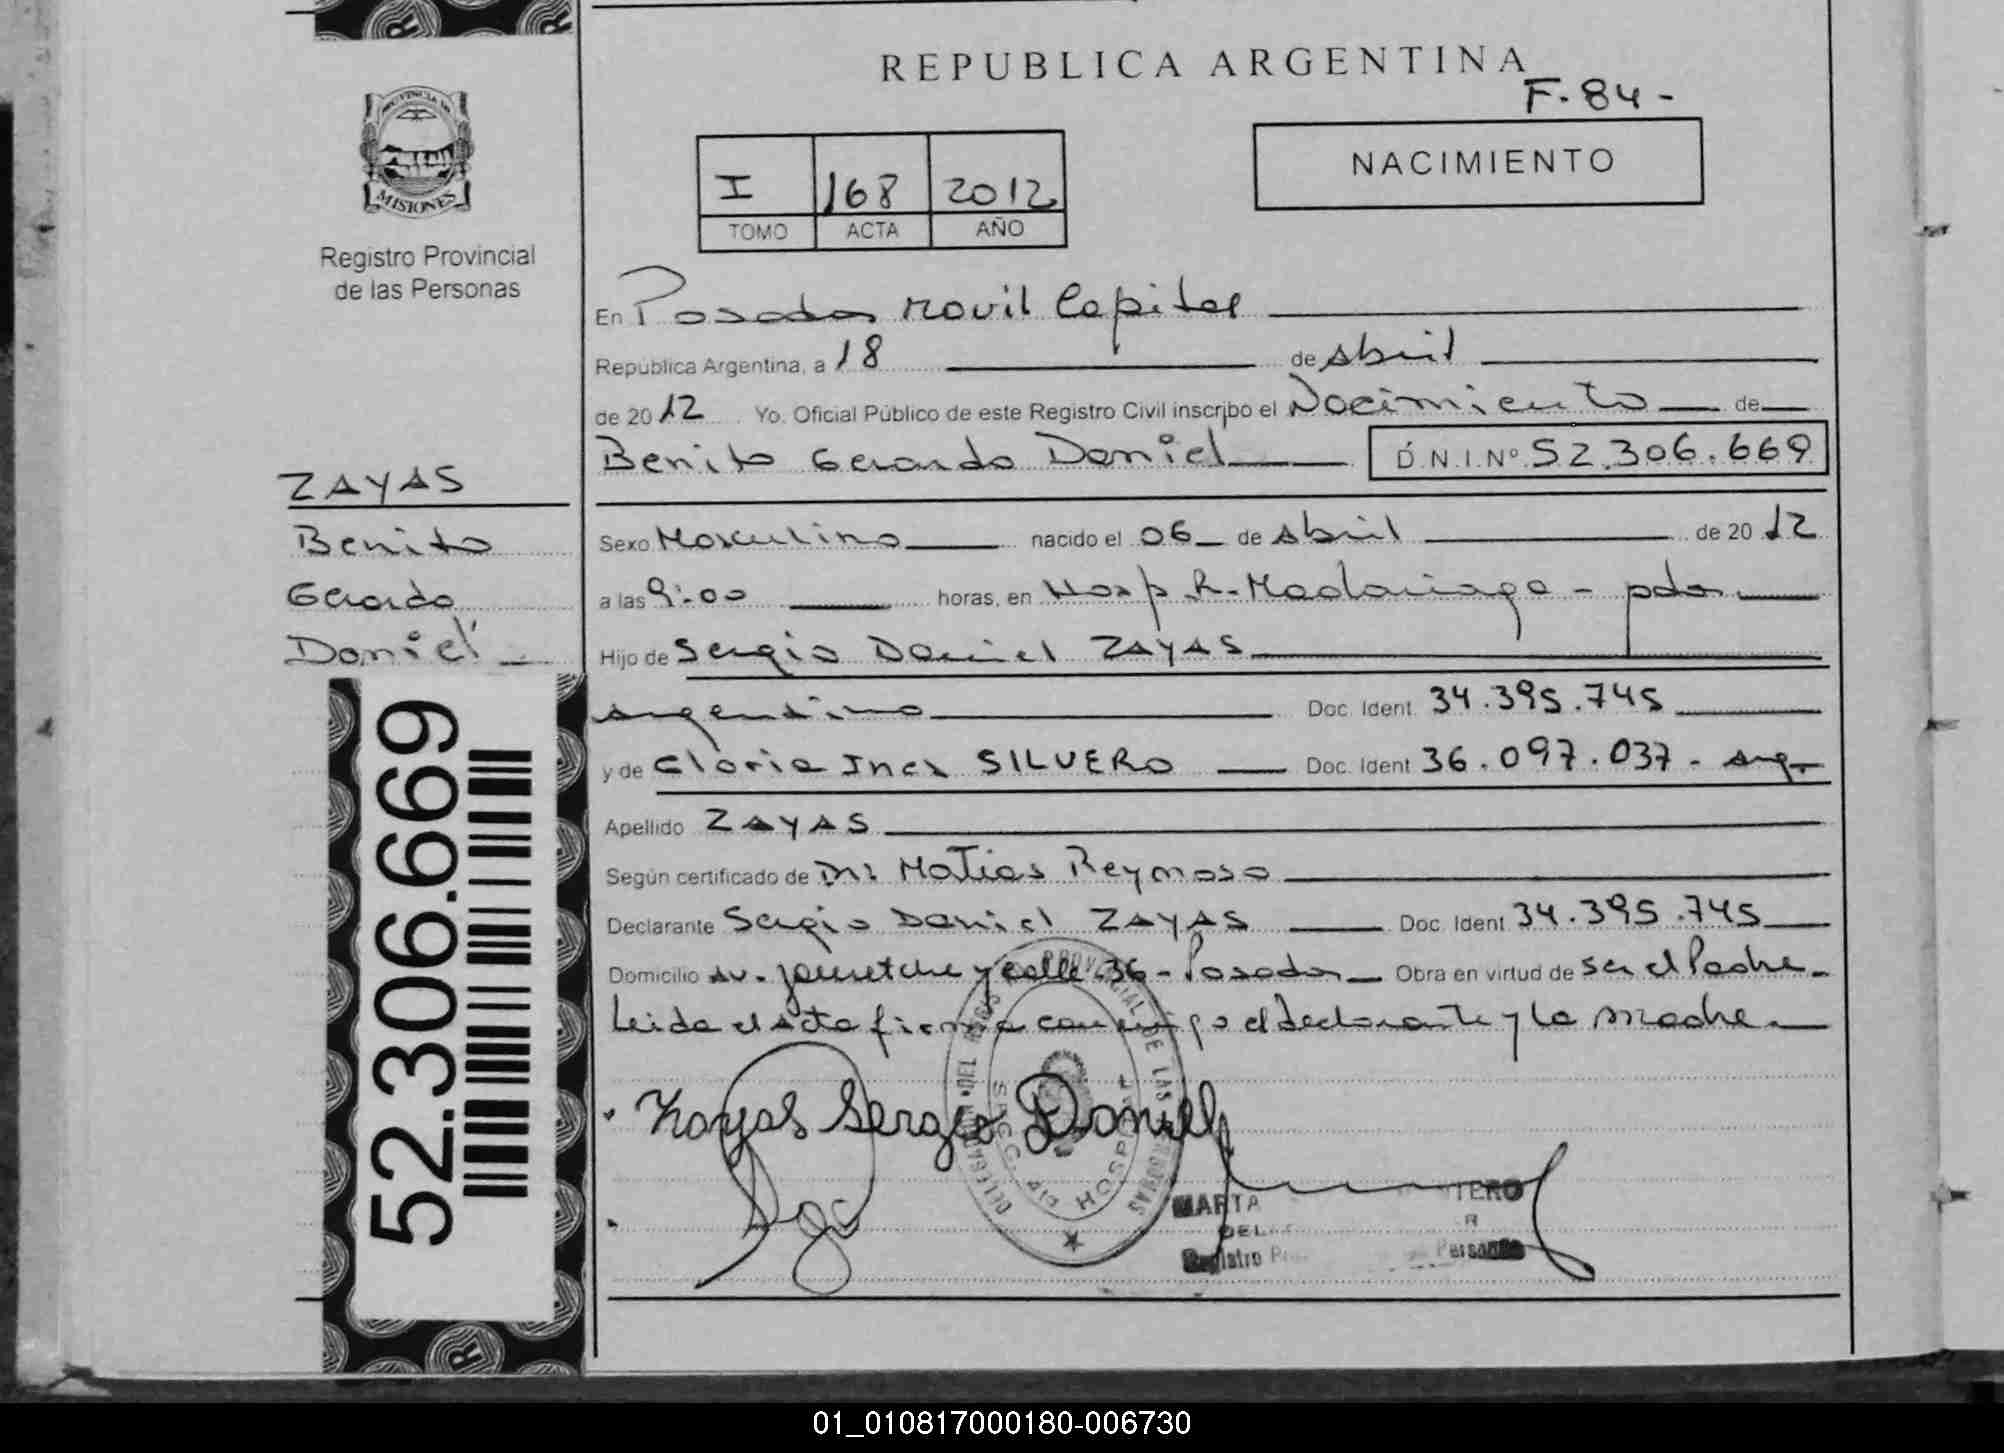 REPUBLICA ARGENTINA
F-84-
PROVINCIA DE
MISIONES
Registro Provincial
de las Personas
I 168 2012
TOMO ACTA AÑO
NACIMIENTO
En Posadas Movil Capital
República Argentina, a 18 de Abril
de 2012 Yo. Oficial Público de este Registro Civil inscribo el Nacimiento de
Benito Gerardo Daniel D.N.I.Nº 52.306.669
ZAYAS
Benito
Gerardo
Daniel
Sexo Masculino nacido el 06 de Abril de 2012
a las 9:00 horas, en Hosp R. Madariaga - pdas
Hijo de Sergio Daniel ZAYAS
Argentino Doc. Ident. 34.395.745
y de Gloria Ines SILVERO Doc. Ident 36.097.037 - Arg.
Apellido ZAYAS
Según certificado de Dr: Matias Reynoso
Declarante Sergio Daniel ZAYAS Doc. Ident 34.395.745
Domicilio Av. Jauretche y calle 36 - Posadas Obra en virtud de ser el Padre.
Leida el Acta firma conmigo el declarante y la madre.
52.306.669
Zayas Sergio Daniel
DELEGACION DEL REGISTRO PROVINCIAL DE LAS PERSONAS
HOSPITAL
MARTA
Registro Personas
01_010817000180-006730